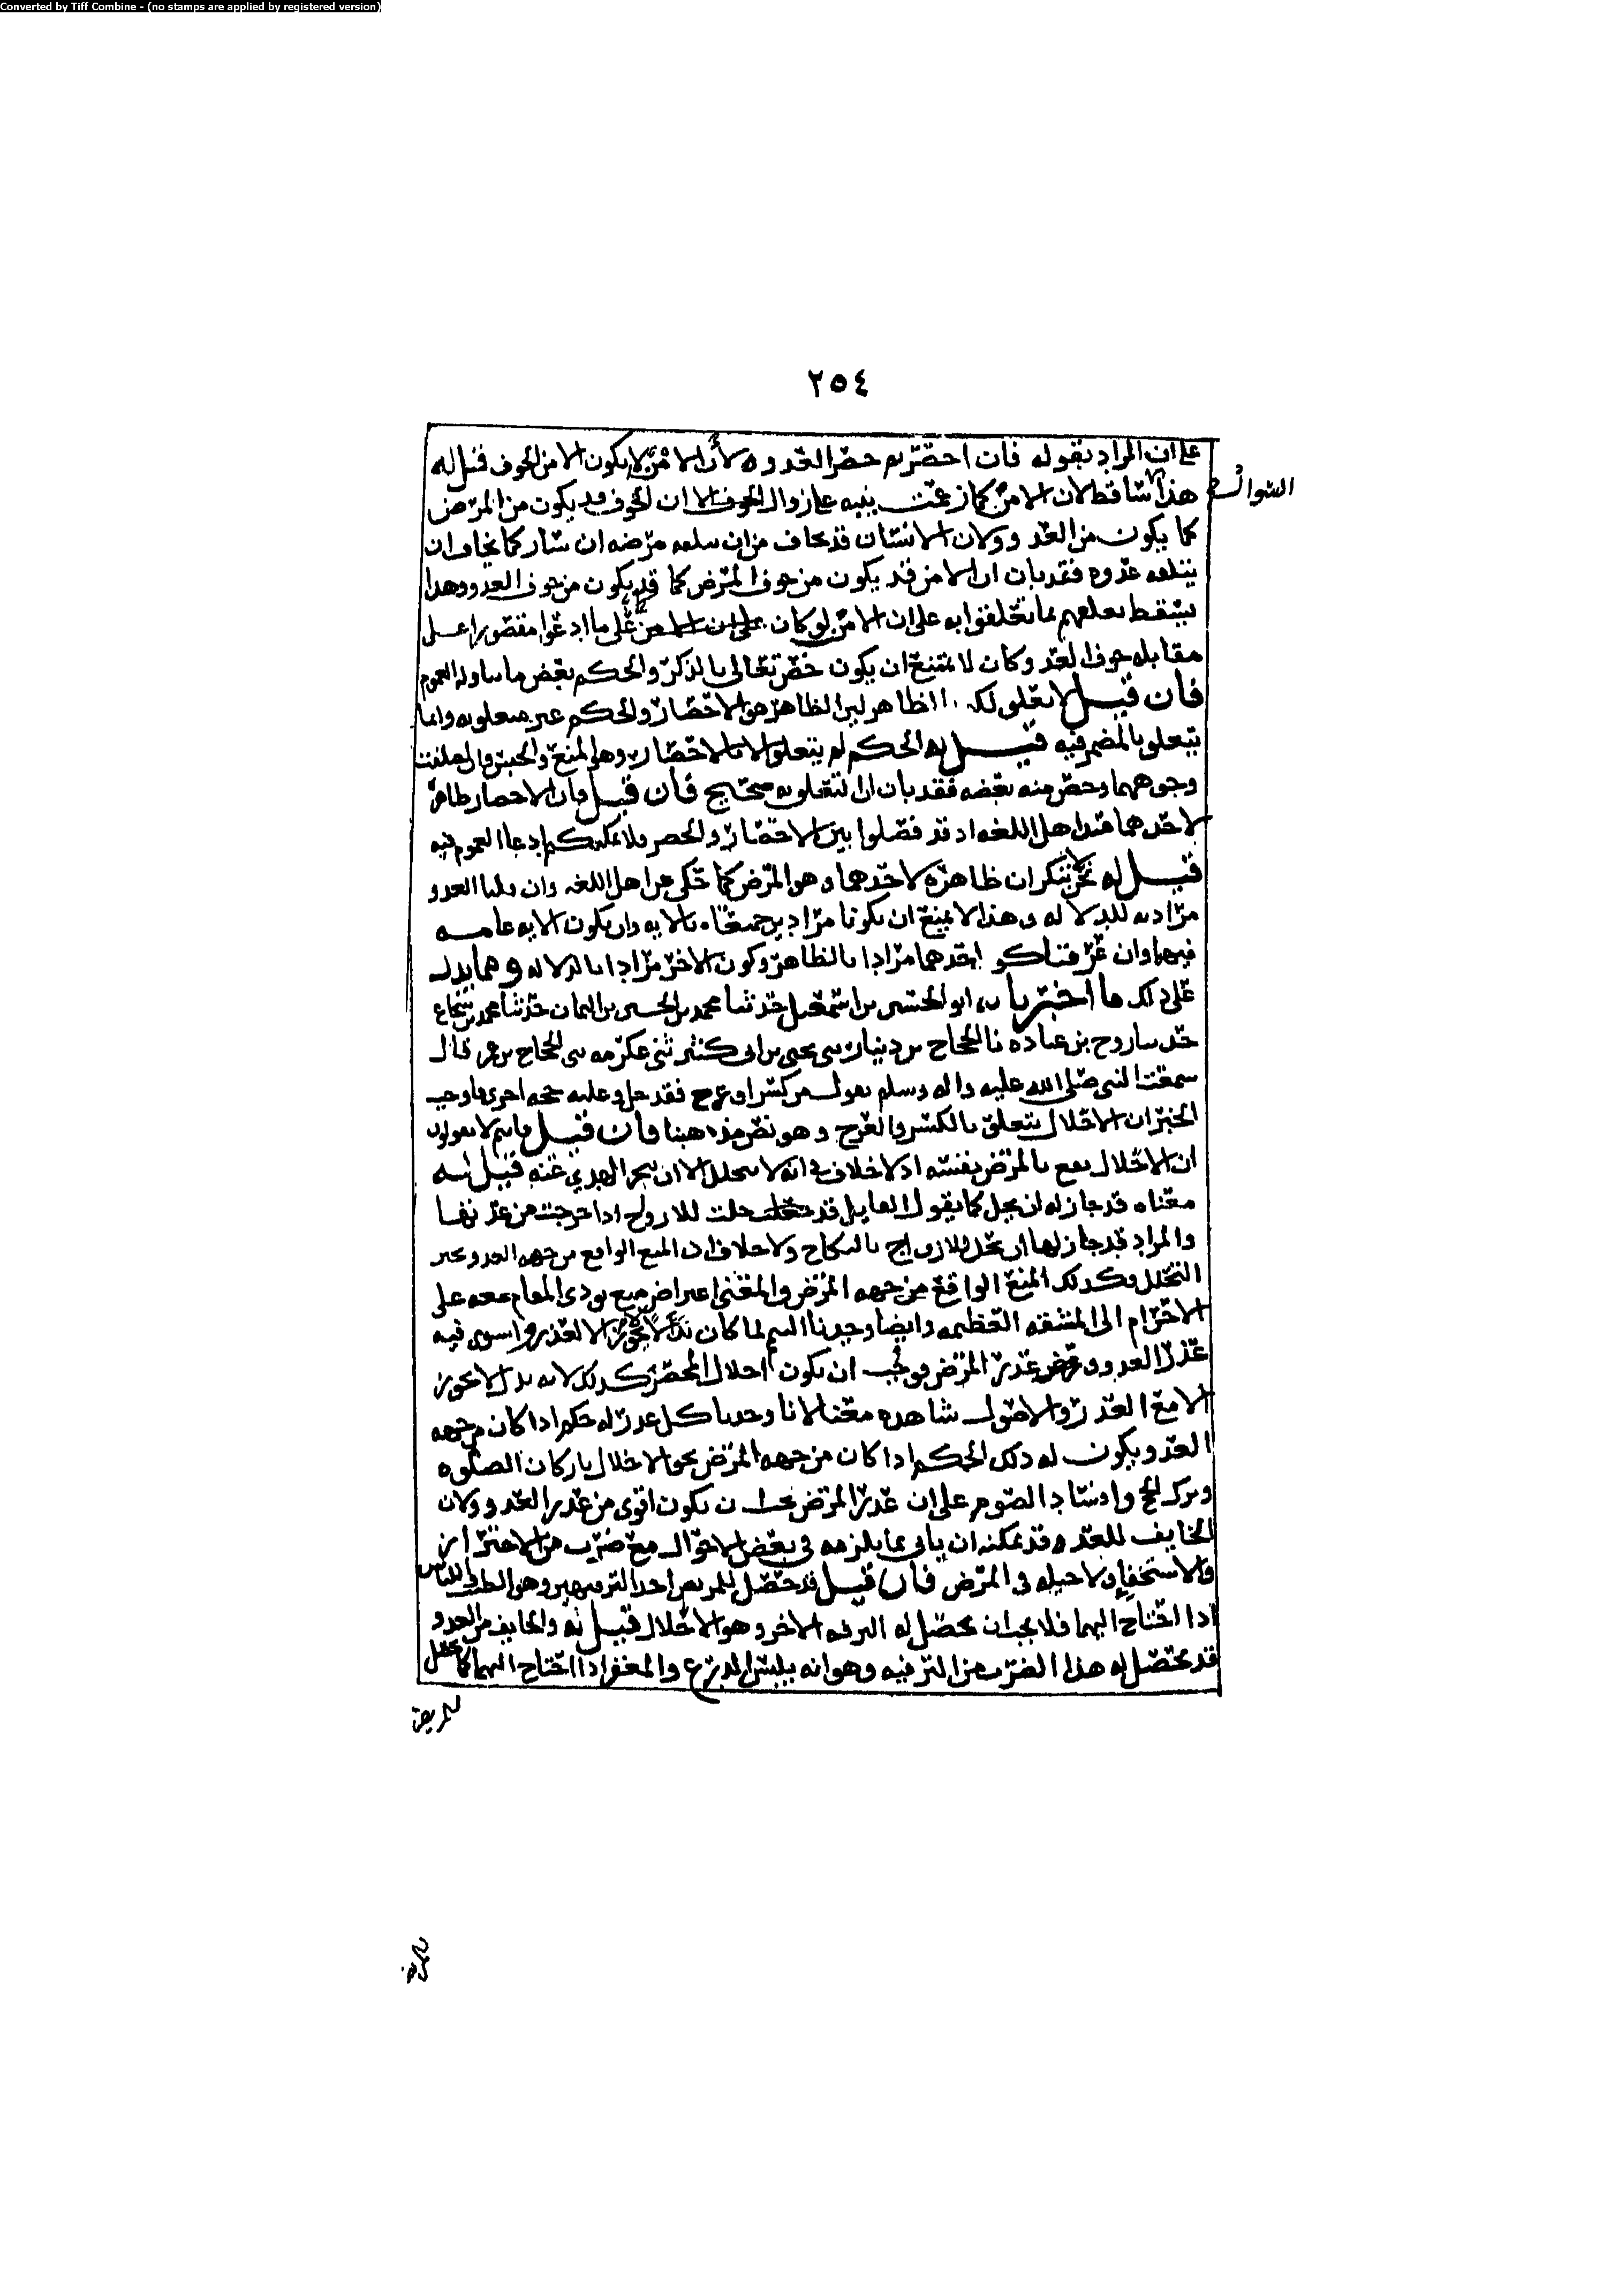 Converted by Tiff Combine - (no stamps are applied by registered version)
٢٥٤
على ان المراد بقوله فان احصرتم حصر العدو لأن الامن لا يكون الا من الخوف قيل له
السوال
هذا ساقط لان الامن كما زعمت ينبه على زوال الخوف الا ان الخوف قد يكون من المرض
كما يكون من العدو ولان الانسان قد يخاف من ان يتلفه مرضه ان سار كما يخاف ان
يتلفه عدوه فقد بان ان الامن قد يكون من خوف المرض كما قد يكون من خوف العدو وهذا
يسقط تعلقهم بما تعلقوا به على ان الامن لو كان على ما ادعوا مقصورا على
مقابله خوف العدو كان لا يمتنع ان يكون خص تعالى بالذكر والحكم بعض ما تناوله العموم
فان قيل لا تعلق لكم بالظاهر لان الظاهر هو الاحصار والحكم غير متعلق به وانما
يتعلق بالمضمر فيه قيل له الحكم لم يتعلق الا بالاحصار وهو المنع والحبس وان اختلفت
وجوههما وخص منه بعضه فقد بان ان التعلق به صحيح فان قيل فان الاحصار ظاهره
لاحدهما عند اهل اللغه اذ قد فصلوا بين الاحصار والحصر ولا يمكنكم ادعا العموم فيه
قيل له نحن لا ننكر ان ظاهره لاحدهما وهو المرض كما حكى عن اهل اللغه وان قلنا العدو
مراد به للدلاله وهذا لا يمنع ان يكونا مرادين جميعا بالايه وان يكون الايه عامه
فيهما وان عرفنا كون احدهما مرادا بالظاهر وكون الاخر مرادا بالدلاله ومما يدل
على ذلك ما اخبرنا به ابو الحسين بن اسمعيل حدثنا محمد بن الحسين بن اليمان حدثنا محمد بن شجاع
حدثنا روح بن عباده نا الحجاج بن دينار ثنى يحيى بن ابى كثير ثنى عكرمه ثنى الحجاج بن عمرو قال
سمعت النبي صلى الله عليه واله وسلم يقول من كسر او عرج فقد حل وعليه حجه اخرى فاوجب
الخبر ان الاحلال يتعلق بالكسر والعرج وهو نص مذهبنا فان قيل فانتم لا تقولون
ان الاحلال يقع بالمرض بنفسه اذ لا خلاف في انه لا يتحلل الا ان ينحر الهدي عنه قيل له
معناه قد جاز له ان يحل كما يقول القايل قد حلت للازواج اذا خرجت من عدتها
والمراد قد جاز لها ان تحل للازواج بالنكاح ولا خلاف ان المنع الواقع من جهه العدو يجيز
التحلل وكذلك المنع الواقع من جهه المرض والمعنى اعتراض منع يودى المقام معه على
الاحرام الى المشقه العظيمه وايضا وجدنا التيمم لما كان بدلا لا يجوز الا لعذر استوى فيه
عذر العدو وعذر المرض فوجب ان يكون احلال المحصر كذلك لانه بدل لا يجوز
الا مع العذر والاصول شاهده معنا لانا وجدنا كل عذر له حكم اذا كان من جهه
العدو يكون له ذلك الحكم اذا كان من جهه المرض نحو الاخلال باركان الصلوه
وترك الحج وافساد الصوم على ان عذر المرض يجب ان يكون اقوى من عذر العدو ولان
الخايف للعدو قد يمكنه ان ياتى بما يلزمه في بعض الاحوال مع ضرب من الاحتراز
والاستخفا ولا حيله في المرض فان قيل قد حصل للمريض احد الترفيهين وهو الطيب واللباس
اذا احتاج اليهما فلا يجب ان يحصل له الترفيه الاخر وهو الاحلال قيل له والخايف من العدو
قد يحصل له هذا الضرب من الترفيه وهو انه يلبس الدرع والمغفر اذا احتاج اليهما كما يحصل
للمريض
للمريض